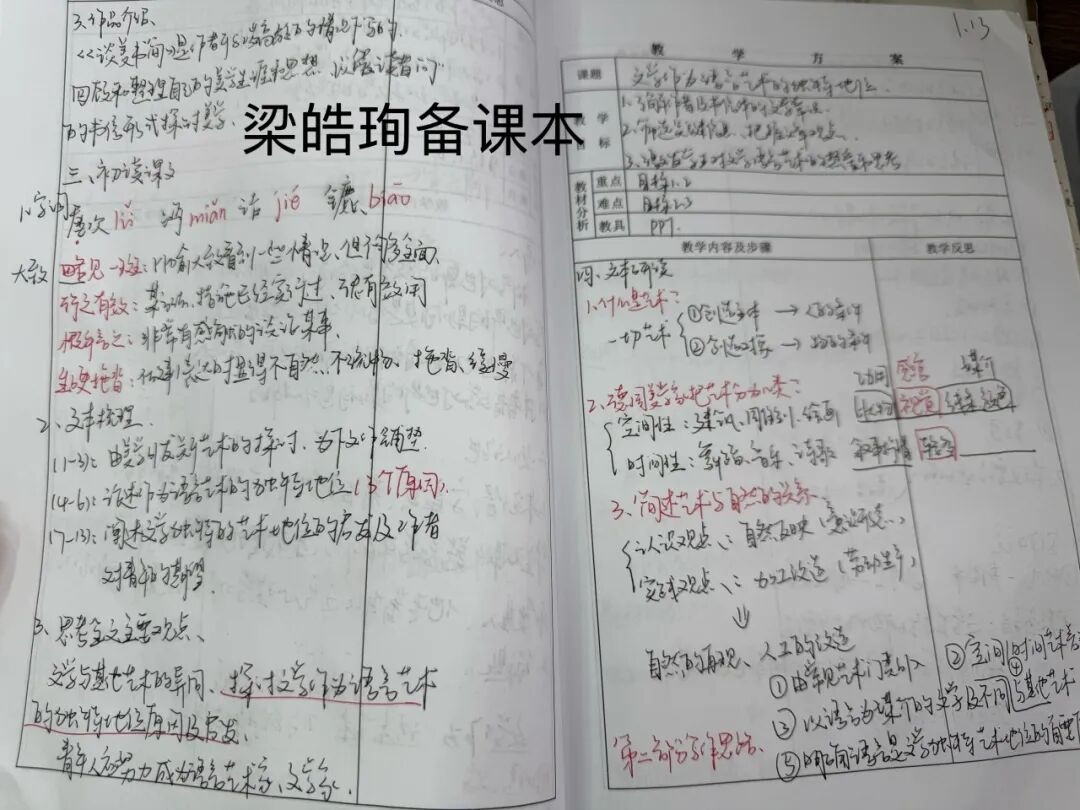 3. 作品介绍、
《谈美书简》是作者于80岁高龄的情况下写的.
回顾和整理自己的美学生涯和思想 以答读者问
的书信形式探讨美学.
梁皓珣备课本
三、初读课文
1.字词 屡次 lǚ 沔 miǎn 诘 jié 镳 biāo
大致 略见一斑：比喻大致看到一些情点、但不够全面、
行之有效：某办法、措施已经实行过、很有效用
慨乎言之：非常有感慨的谈论某事、
生硬拖沓：做事、表达时显得不自然、不流畅、拖沓、缓慢
2、文本梳理.
(1-3)：由美学引发关于艺术的探讨、为下文作铺垫.
(4-6)：论述作为语言艺术的独特地位(3个原因).
(7-13)：阐述文学独特的艺术地位的启发及作者
对青年的期望.
3、思考全文主要观点、
文学与其他艺术的异同、探讨文学作为语言艺术
的独特地位原因及启发、
青年人应努力成为语言艺术家、文学家.
1.13
教 学 方 案
课题 文学作为语言艺术的独特地位.
教学目标 1.了解作者及
2.筛选关键信息、把握文章观点.
3. 对文学语言艺术的 思考
教材分析 重点 目标1.2
难点 目标2.3
教具 PPT.
教学内容及步骤 教学反思
四、文本研读
1.什么是艺术？
一切艺术 ①创造主体 → 人的条件
②创造对象 → 物的条件
功用 感官 媒介
2、德国美学家把艺术分为八类：
空间性：建筑、雕刻、绘画 状物 视觉 线条、颜色
时间性：舞蹈、音乐、诗歌 叙事抒情 听觉
3、简述艺术与自然的关系
认识观点：自然反映(意识形态)
实践观点：加工改造(劳动生产)
⇓
自然的再现、人工的改造
①由常见艺术门类引入 ②空间、时间艺术
③以语言为媒介的文学及不同 ④与其他艺术
第二部分写作思路、
⑤明确语言是文学独特艺术地位的首要